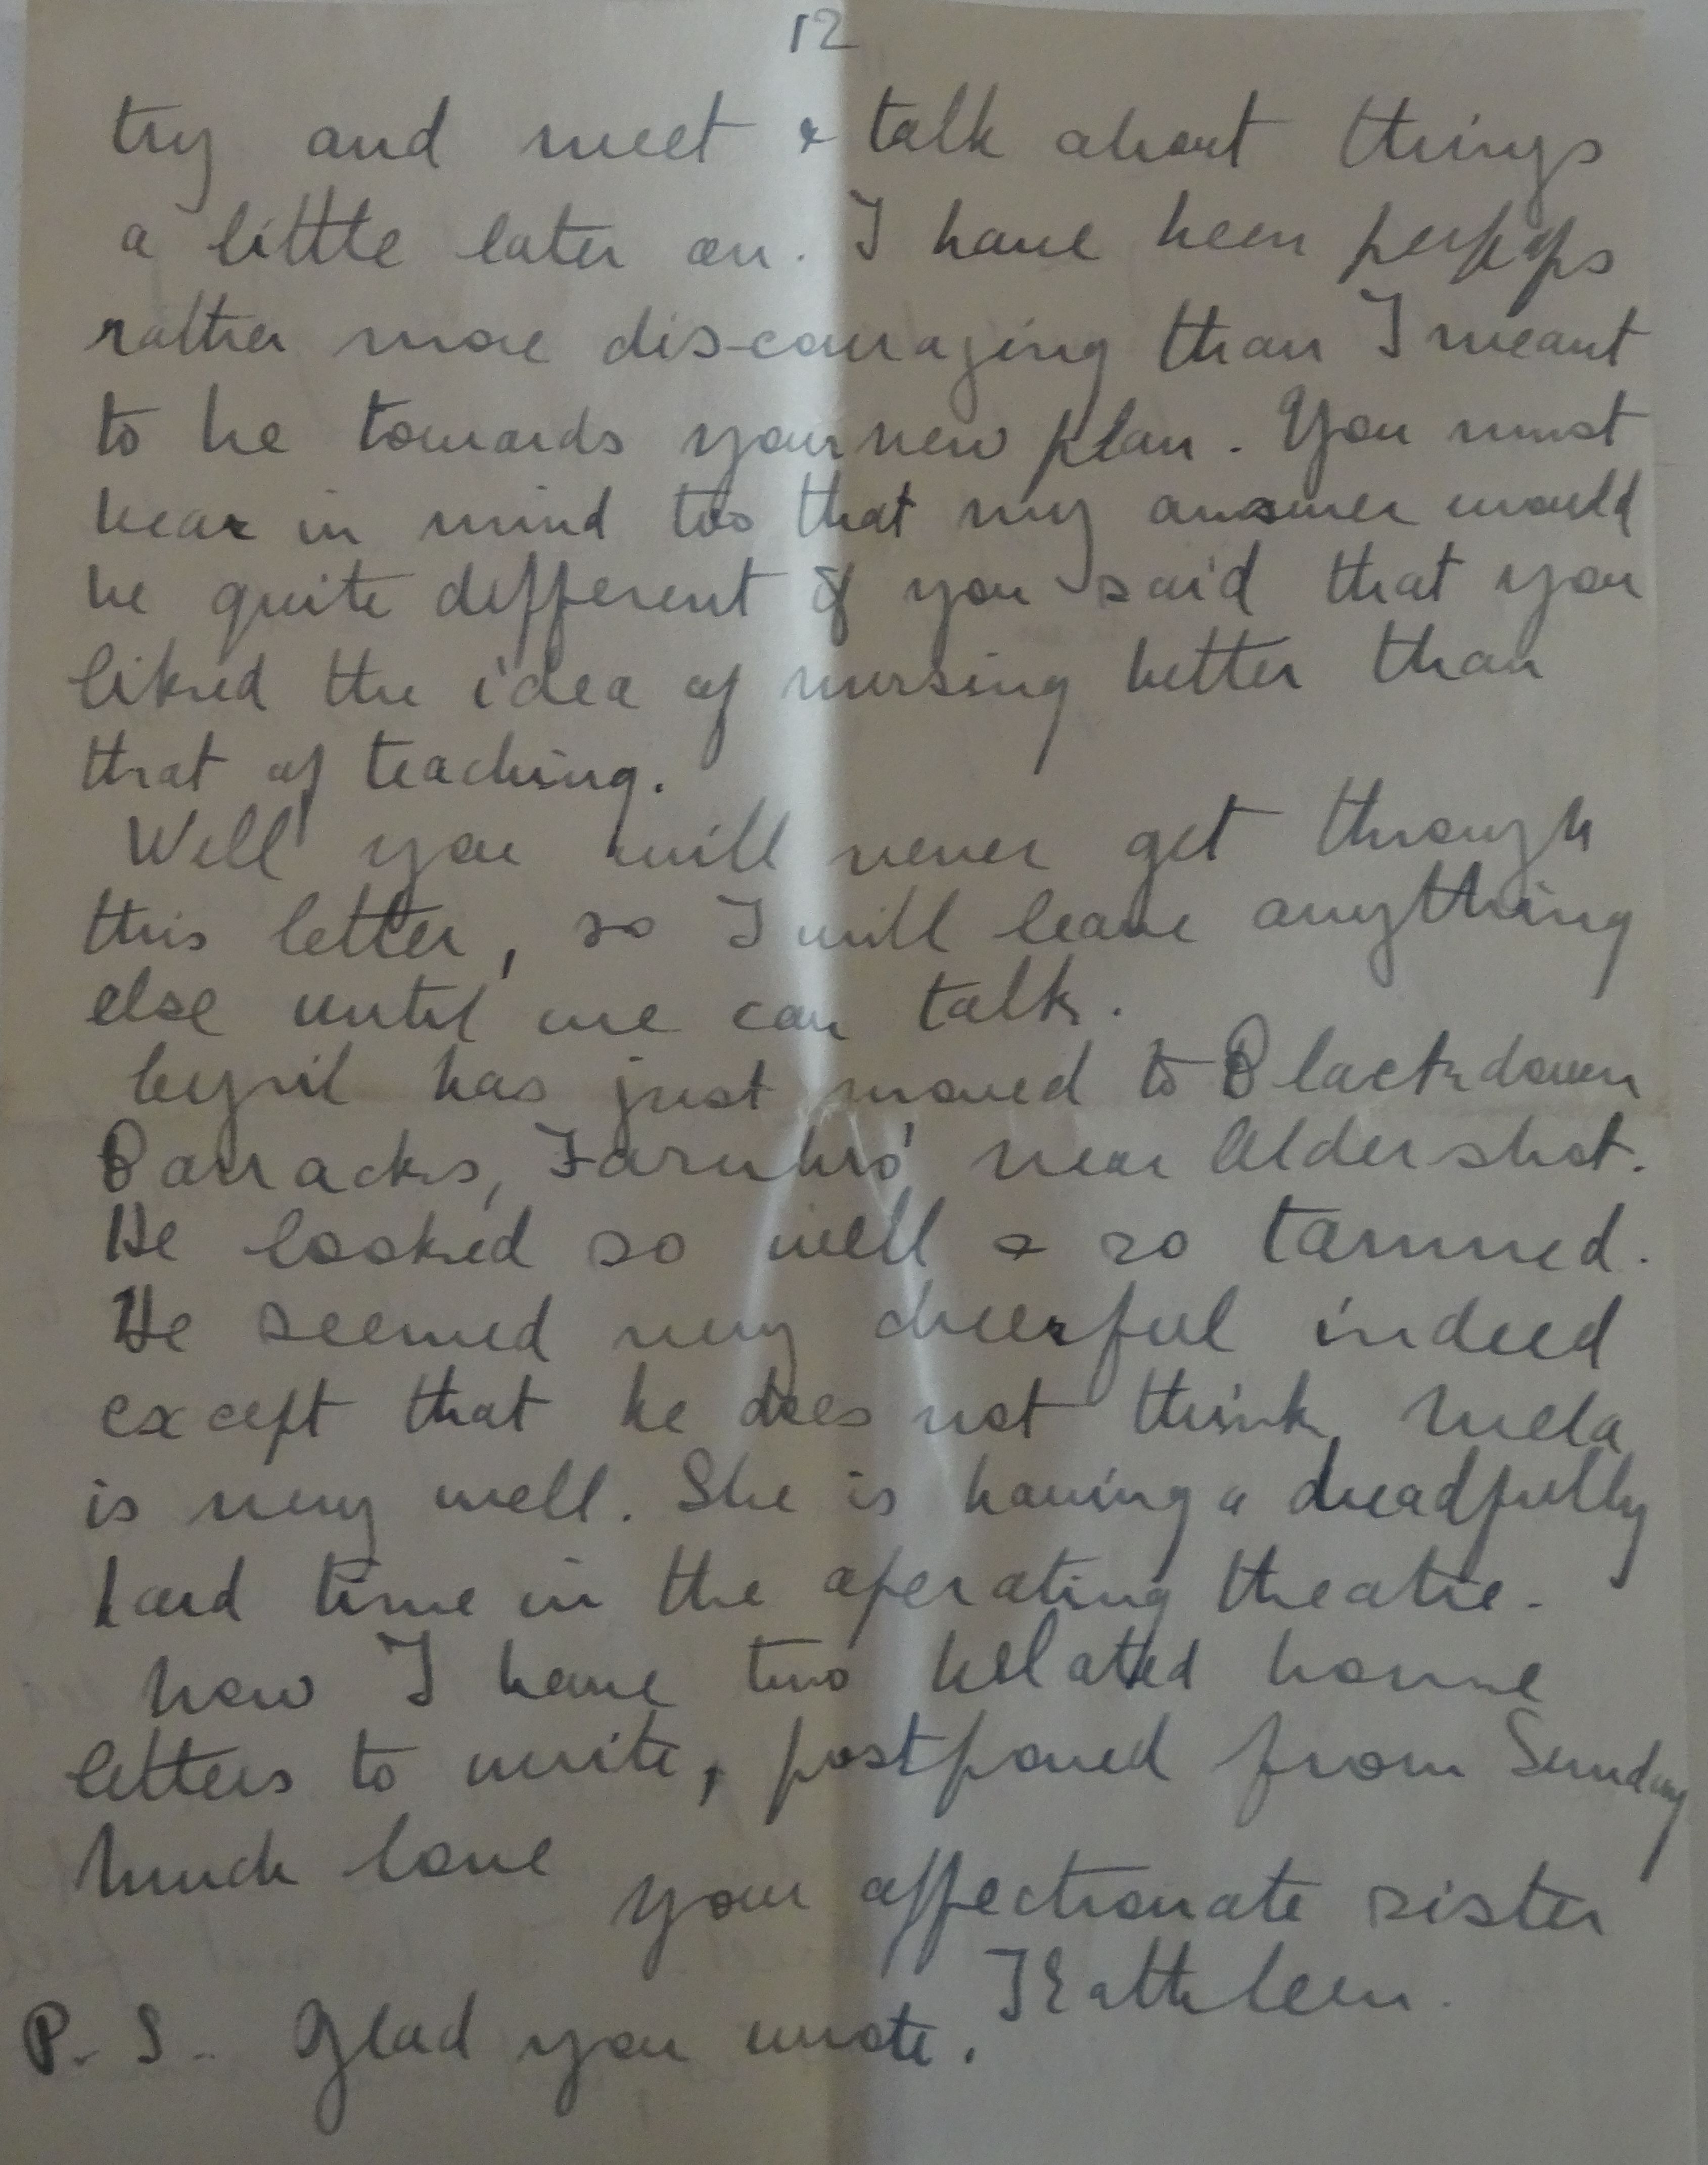 12
try and meet & talk about things
a little later on. I have been perhaps
rather more dis-couraging than I meant
to be towards your new plan. You must
bear in mind too that my answer would
be quite different if you said that you
liked the idea of nursing better than
that of teaching.
Well you will never get through
this letter, so I will leave anything
else until we can talk.
Cyril has just moved to Blackdown
Barracks, Farnbro' near Aldershot.
He looked so well & so tanned.
He seemed very cheerful indeed
except that he does not think Mela
is very well. She is having a dreadfully
hard time in the operating theatre.
Now I have two belated home
letters to write, postponed from Sunday
Much love
your affectionate sister
Kathleen.
P. S. Glad you wrote.